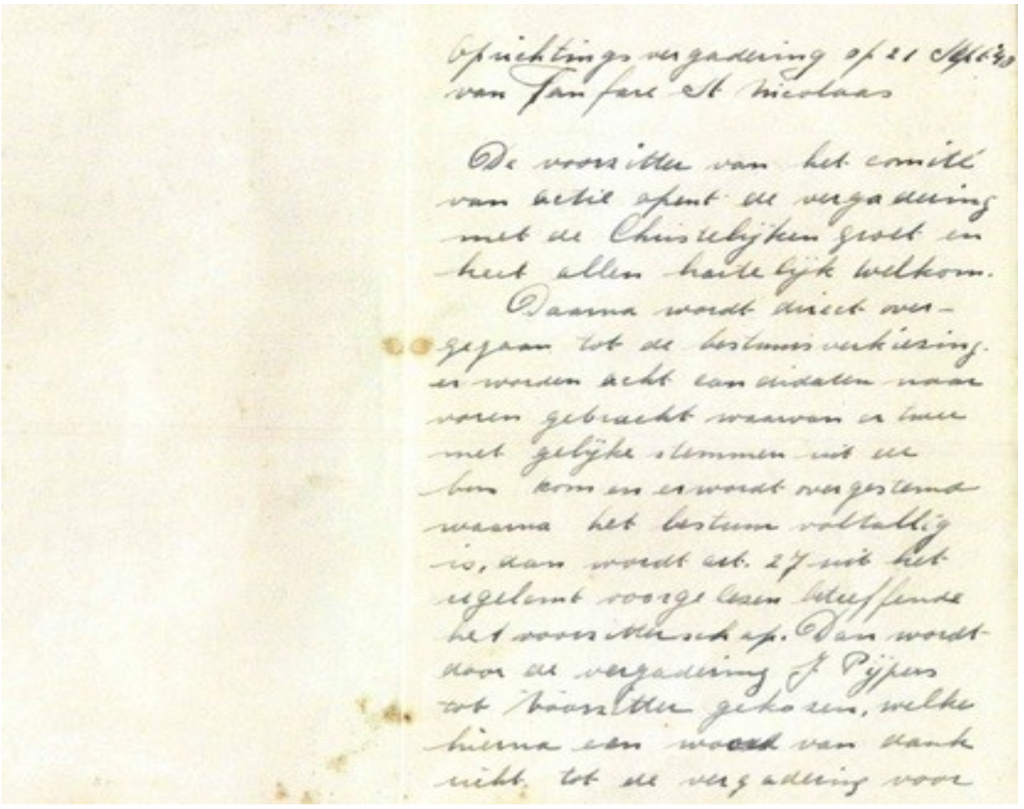 Oprichtingsvergadering op 21 Sept '40
van Fanfare St Nicolaas
De voorzitter van het comité
van actie opent de vergadering
met de Christelijken groet en
heet allen hartelijk welkom.
Daarna wordt direct over-
gegaan tot de bestuursverkiezing.
er worden acht candidaten naar
voren gebracht waarvan er twee
met gelijke stemmen uit de
bus komen er wordt overgestemd
waarna het bestuur voltallig
is, dan wordt art. 27 uit het
reglemt voorgelezen betreffende
het voorzitterschap. Dan wordt
door de vergadering J Pijpers
tot Voorzitter gekozen, welke
hierna een woord van dank
richt tot de vergadering voor